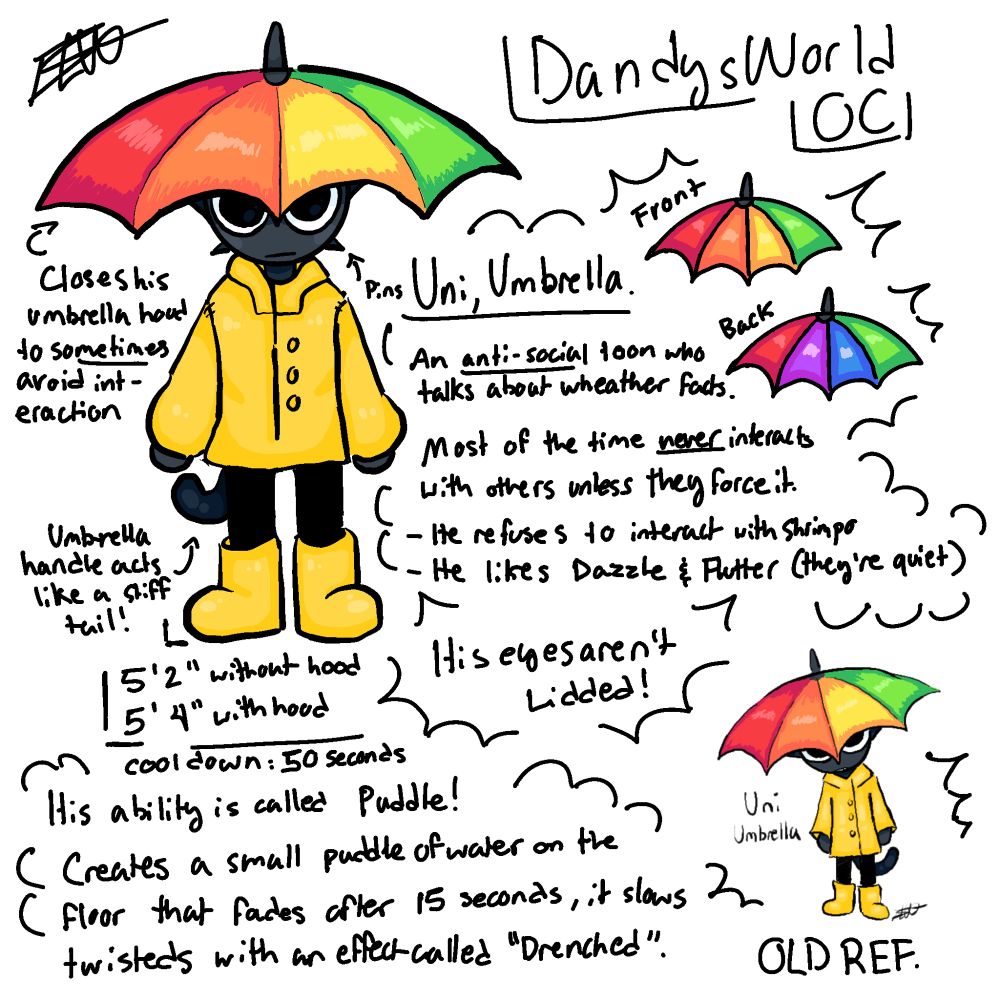 DandysWorld
OC
Front
Back
Closes his
umbrella hood
to sometimes
avoid int-
eraction
Pins
Uni, Umbrella.
An anti-social toon who
talks about wheather facts.
Most of the time never interacts
with others unless they force it.
- He refuses to interact with shrimpo
- He likes Dazzle & Flutter (they're quiet)
Umbrella
handle acts
like a stiff
tail!
His eyes aren't
Lidded!
5'2" without hood
5'4" with hood
cooldown: 50 seconds
His ability is called Puddle!
Creates a small puddle of water on the
floor that fades after 15 seconds, it slows
twisteds with an effect called "Drenched".
Uni
Umbrella
OLD REF.